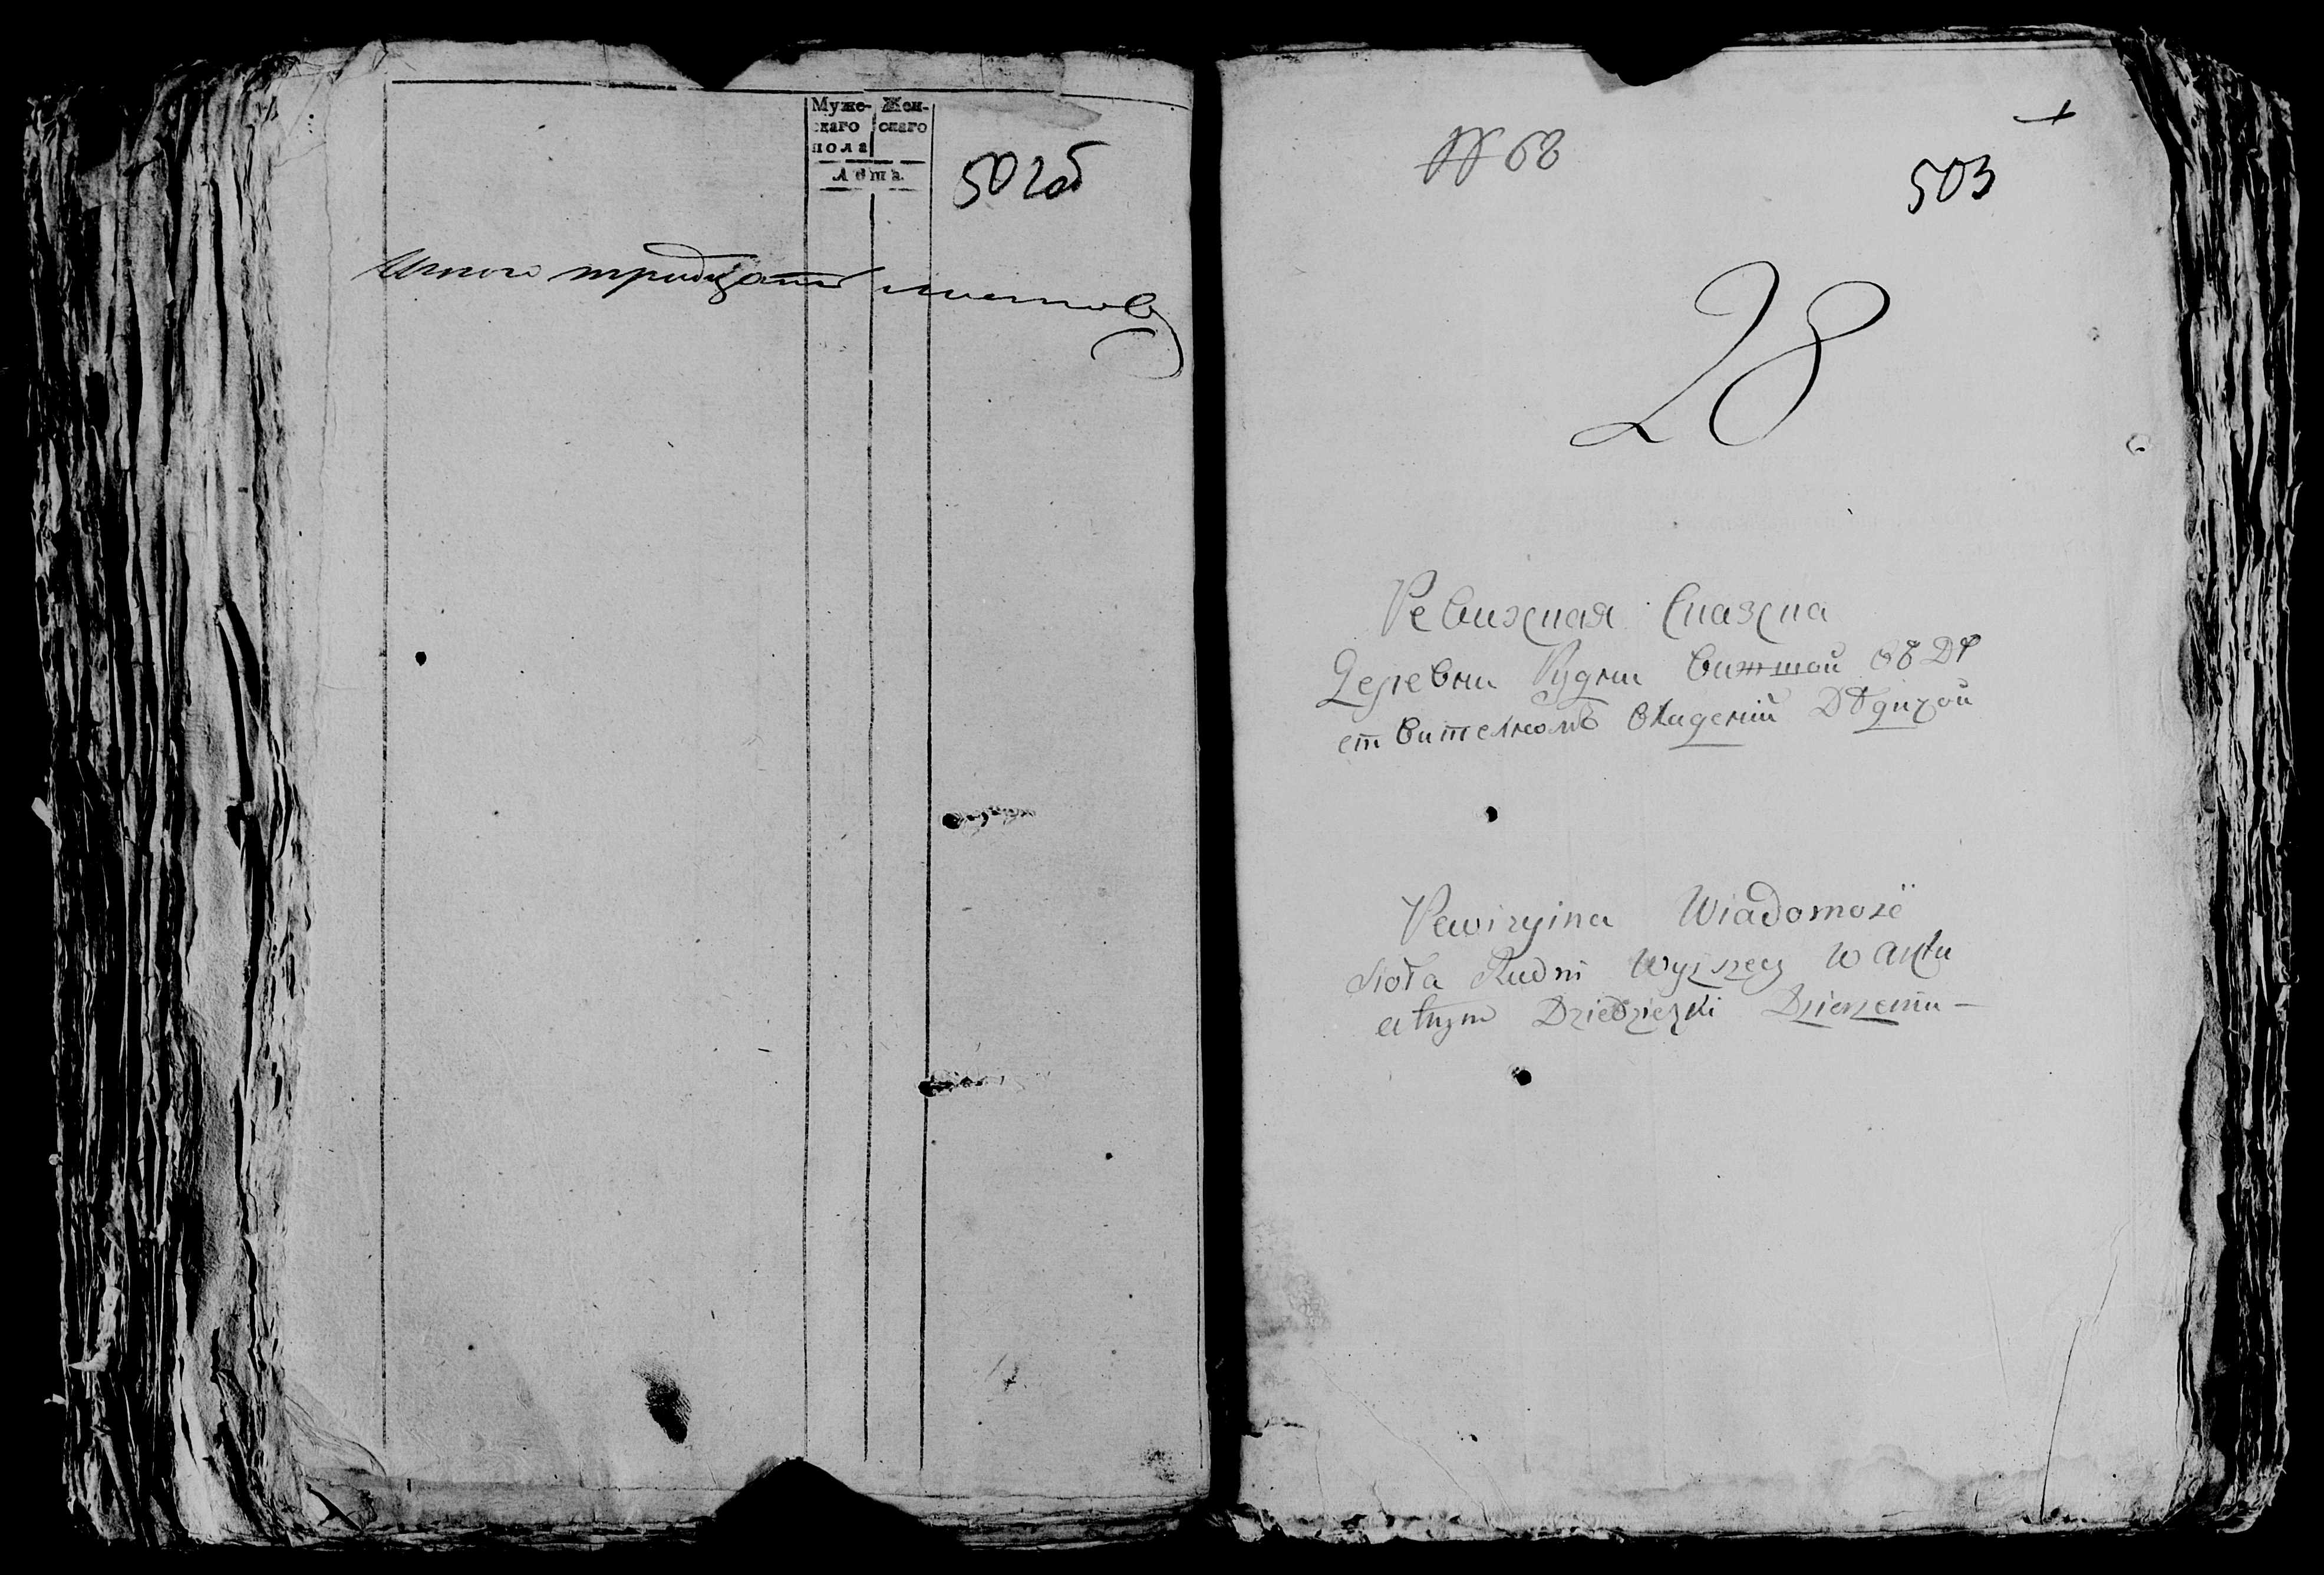 Муже- Жен-
скаго скаго
пола
Лѣта.
502об
Итого тридцать листовъ
№ 68
503
28
Ревизская Сказка
Деревни Рудни Вижшой въ Дѣ
ств вителномъ владеніи Дѣдизой
Rewizyina Wiadomosc
Sioła Rudni Wyzszey w aktu
alnym Dziedziczki Dzierzeniu —